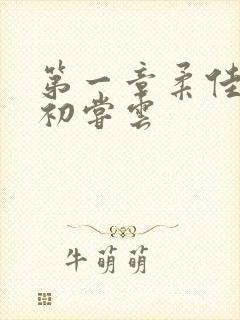 第一章柔佳
初尝云
牛萌萌